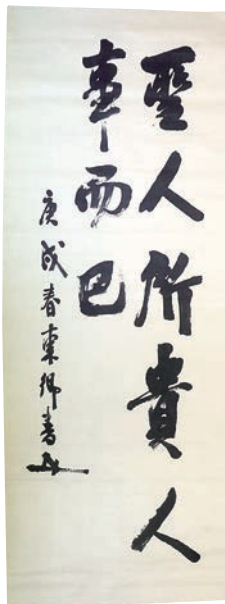 聖人所貴人
事而已
庚戌春東郷書